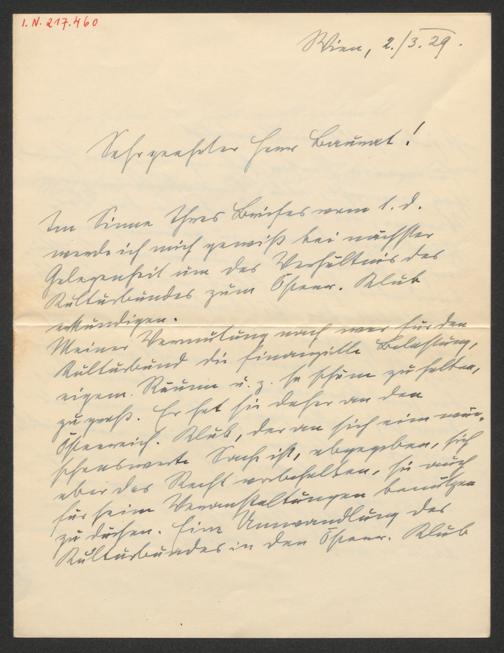 I.N. 217.460
Wien, 2./3. 29.
Sehr geehrter Herr Baurat!
Im Sinne Ihres Briefes vom 1. d.
werde ich mich gewiß bei nächster
Gelegenheit um das Verhältnis des
Kulturbundes zum Österr. Klub
erkundigen.
Meiner Vermutung nach war für den
Kulturbund die finanzielle Belastung,
eigene Räume u. z. so schöne zu halten,
zu groß. Er hat sie daher an den
Österreich. Klub, der an sich eine wün-
schenswerte Sache ist, abgegeben, sich
aber das Recht vorbehalten, sie auch
für seine Veranstaltungen benützen
zu dürfen. Eine Umwandlung des
Kulturbundes in den Österr. Klub